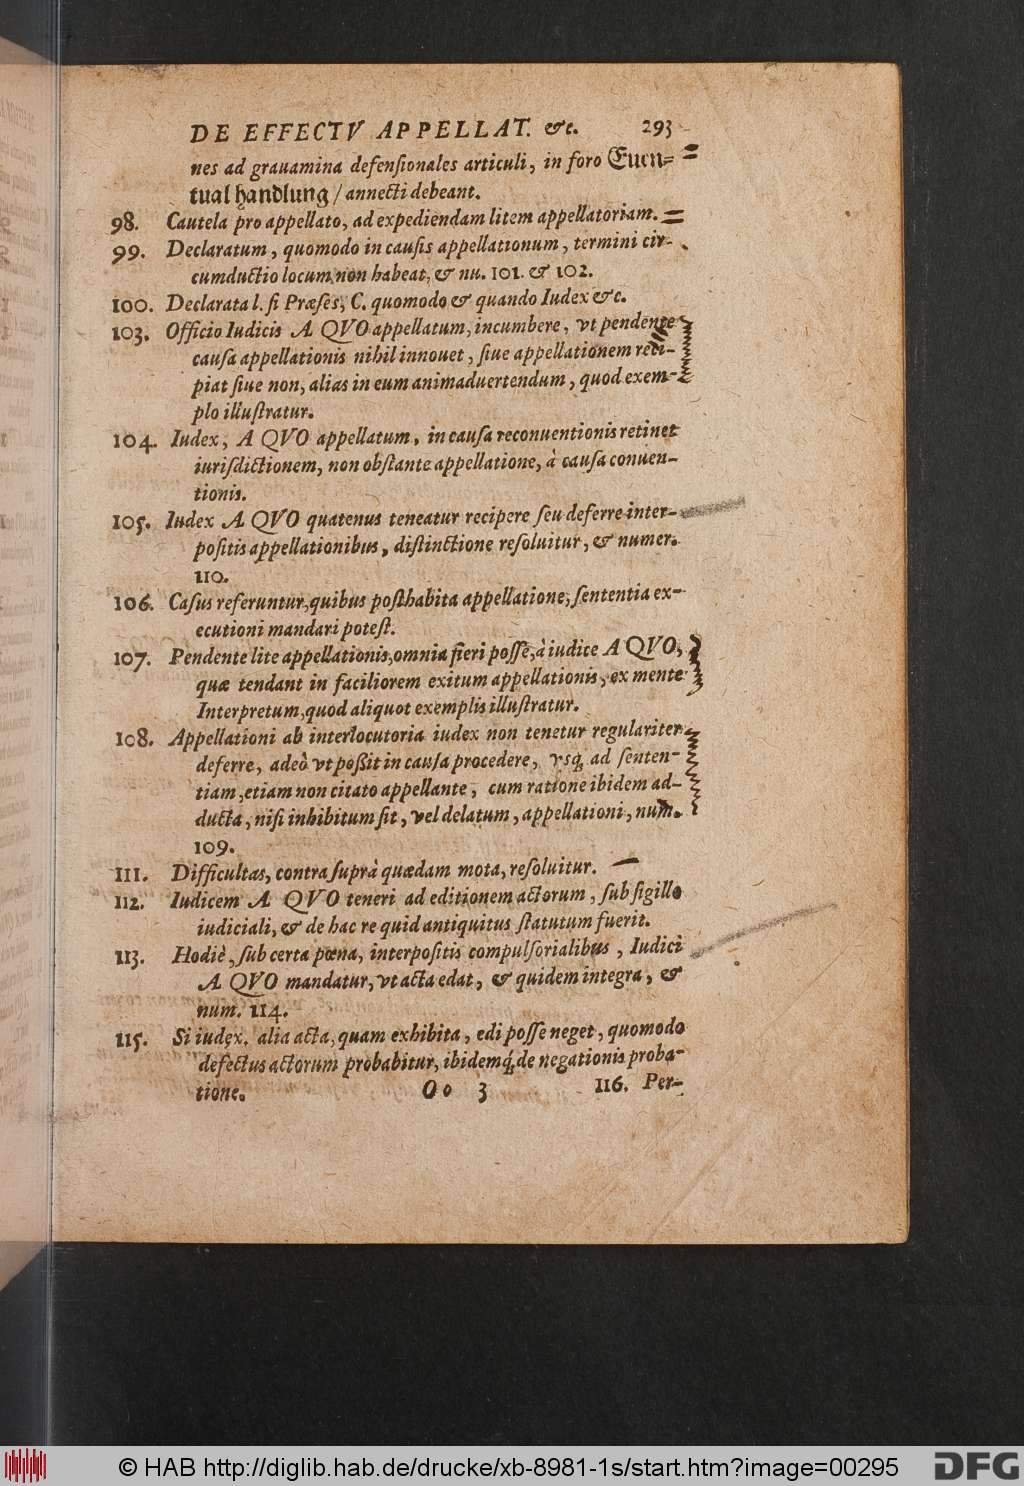 DE EFFECTV APPELLAT. &c. 293
nes ad grauamina defenſionales articuli, in foro Euen=
tual handlung / annecti debeant.
98. Cautela pro appellato, ad expediendam litem appellatoriam.
99. Declaratum, quomodo in cauſis appellationum, termini cir-
cumductio locum non habeat, & nu. 101. & 102.
100. Declarata l. ſi Præſes, C. quomodo & quando Iudex &c.
103. Officio Iudicis A QVO appellatum, incumbere, vt pendente
cauſa appellationis nihil innouet, ſiue appellationem reci-
piat ſiue non, alias in eum animaduertendum, quod exem-
plo illuſtratur.
104. Iudex, A QVO appellatum, in cauſa reconuentionis retinet
iuriſdictionem, non obſtante appellatione, à cauſa conuen-
tionis.
105. Iudex A QVO quatenus teneatur recipere ſeu deferre inter-
poſitis appellationibus, diſtinctione reſoluitur, & numer.
110.
106. Caſus referuntur, quibus poſthabita appellatione, ſententia ex-
ecutioni mandari poteſt.
107. Pendente lite appellationis, omnia fieri poſſe, à iudice A QVO,
quæ tendant in faciliorem exitum appellationis, ex mente
Interpretum, quod aliquot exemplis illuſtratur.
108. Appellationi ab interlocutoria iudex non tenetur regulariter
deferre, adeò vt poßit in cauſa procedere, vsq́ ad ſenten-
tiam, etiam non citato appellante, cum ratione ibidem ad-
ducta, niſi inhibitum ſit, vel delatum, appellationi, num.
109.
111. Difficultas, contra ſuprà quædam mota, reſoluitur.
112. Iudicem A QVO teneri ad editionem actorum, ſub ſigillo
iudiciali, & de hac re quid antiquitus ſtatutum fuerit.
113. Hodiè, ſub certa pœna, interpoſitis compulſorialibus, Iudici
A QVO mandatur, vt acta edat, & quidem integra, &
num. 114.
115. Si iudex, alia acta, quam exhibita, edi poſſe neget, quomodo
defectus actorum probabitur, ibidemq́; de negationis proba-
tione. O o 3 116. Per-
© HAB http://diglib.hab.de/drucke/xb-8981-1s/start.htm?image=00295 DFG